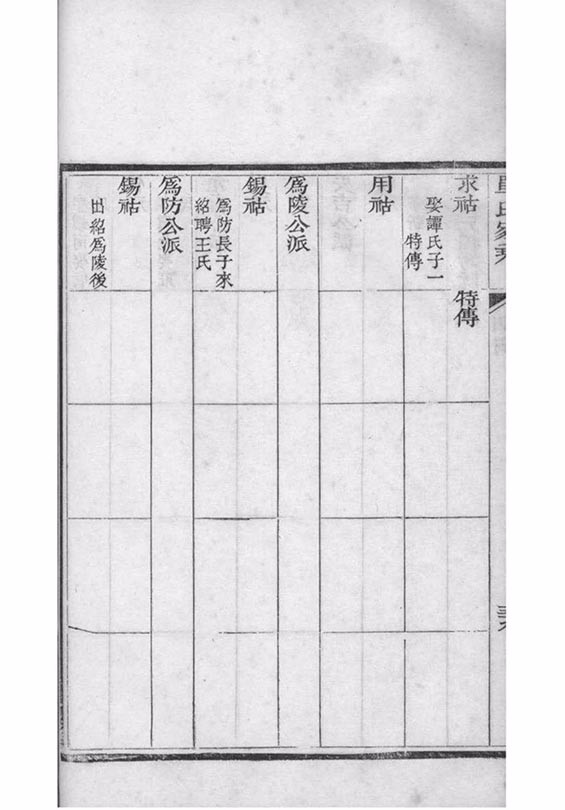 求祜
娶譚氏子一
特傳
特傳
用祜
爲陵公派
錫祜
爲防長子來
紹聘王氏
爲防公派
錫祜
出紹爲陵後